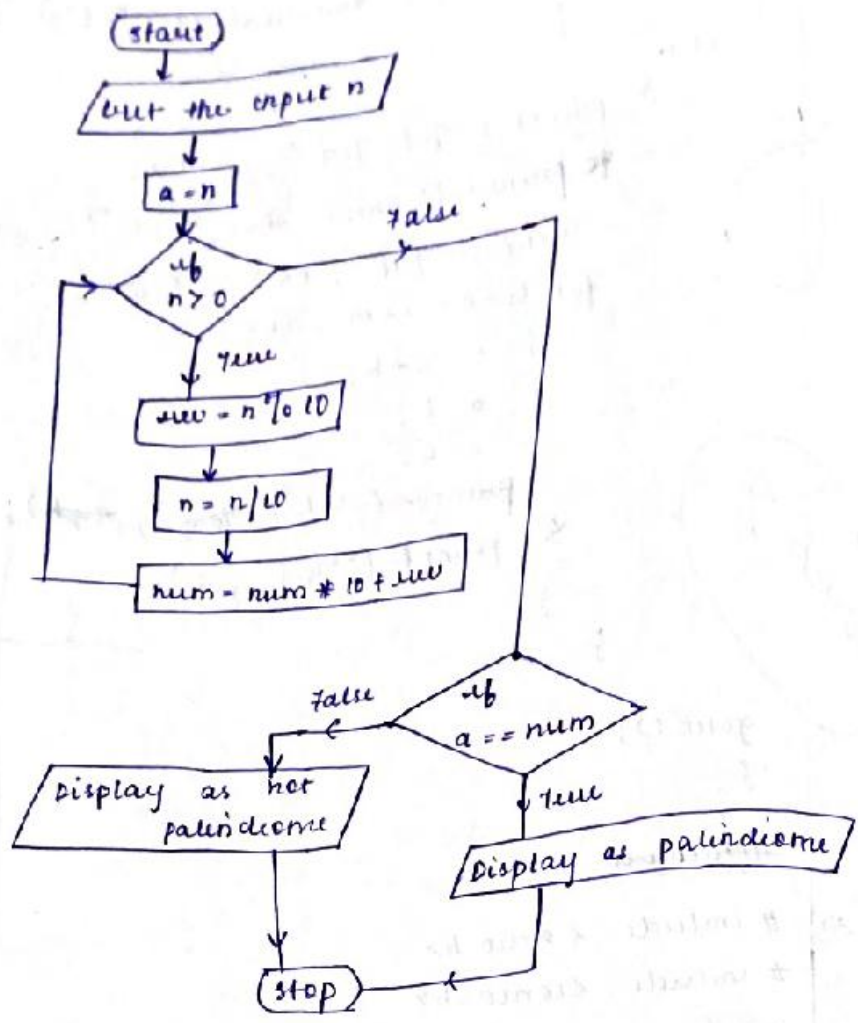 start
the input n
a = n
False
if
n > 0
True
rev = n % 10
n = n/10
num = num * 10 + rev
if
a == num
False
True
Display as not
palindrome
Display as palindrome
stop